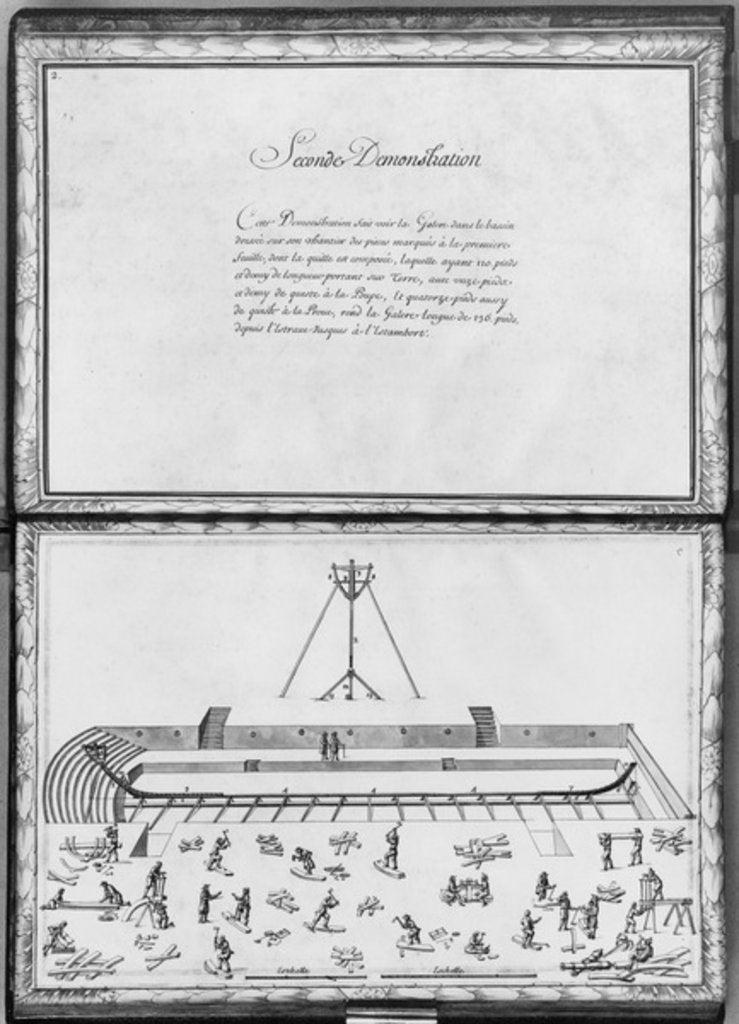 2.
Seconde Demonstration
Cette Demonstration fait voir la Galere dans le bassin
dressée sur son chantier des pieces marqués à la premiere
feuille, dont la quille est composée, laquelle ayant 110 pieds
et demy de longueur portant sur Terre, avec onze pieds
et demy de queste à la Poupe, et quatorze pieds aussy
de queste à la Proue, rend la Galere longue de 136 pieds,
depuis l'estrave jusques à l'estambort.
Eschelle
Eschelle